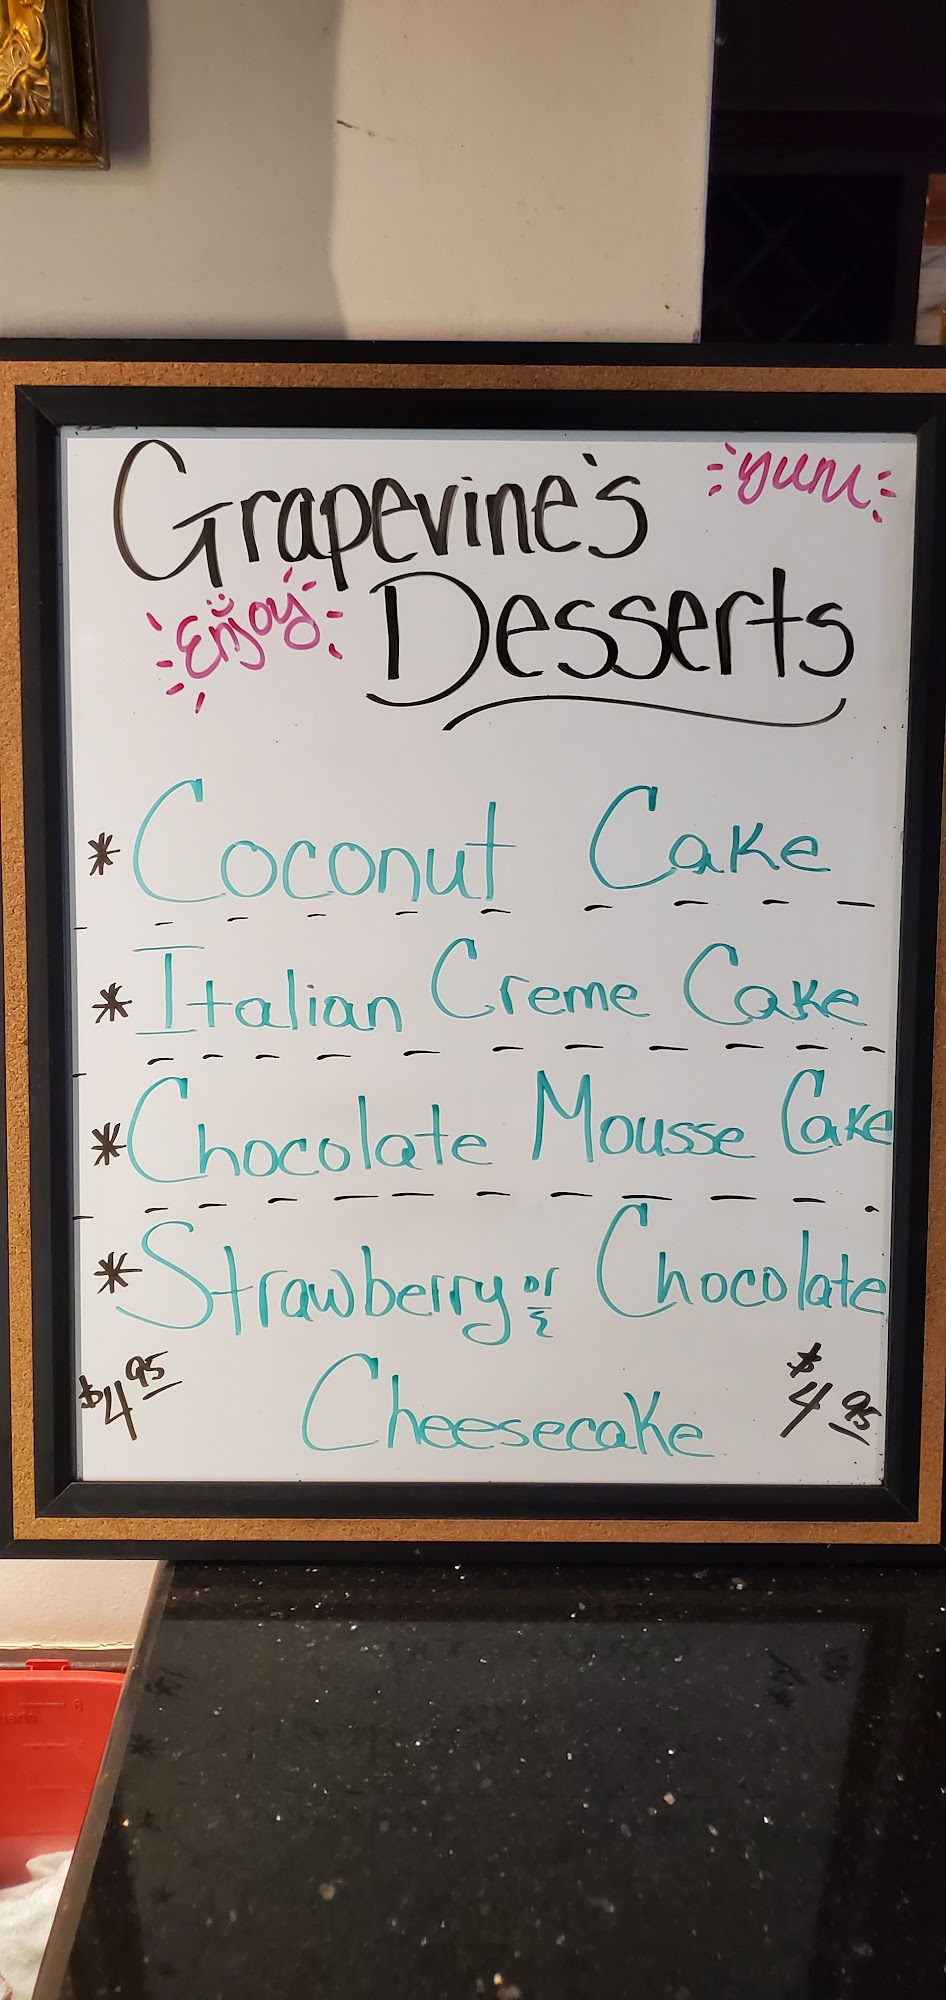 Grapevine's
yum
Enjoy
Desserts
* Coconut Cake
* Italian Creme Cake
* Chocolate Mousse Cake
* Strawberry or Chocolate
$4.95 Cheesecake $4.95